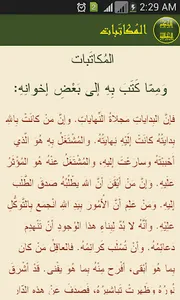 2:29 AM
المكاتبات
المُكاتَبات
وَمِمَّا كَتَبَ بِهِ إلى بَعْضِ إخوانِهِ:
فإنَّ البداياتِ مجلاةُ النِّهاياتِ. وإنَّ مَنْ كانتْ باللهِ
بدايتُهُ كانَتْ إليْهِ نهايتُهُ. والمُشْتَغَلُ بهِ هوَ الَّذي
أحْبَبْتَهُ وسارعْتَ إليهِ، والمُشْتَغَلُ عنْهُ هوَ المُؤثَرُ
عليْهِ. وإنَّ مَنْ أيقَنَ أنَّ اللهَ يطلُبُهُ صدقَ الطلبَ
إليْهِ. ومَنْ عَلِمَ أنَّ الأمورَ بيدِ اللهِ انْجَمَعَ بالتَّوَكُّلِ
عليْهِ. وأنَّهُ لا بُدَّ لِبِناءِ هذا الوُجودِ أنْ تنهَدِمَ
دعائمُهُ. وأنْ تُسْلَبَ كرائمُهُ. فالعاقلُ مَنْ كانَ
بما هوَ أبْقى، أفرَحَ منْهُ بما هوَ يفنى. قدْ أشرقَ
نورُهُ وظهرتْ تباشيرُهُ، فصدَفَ عنْ هذهِ الدّارِ